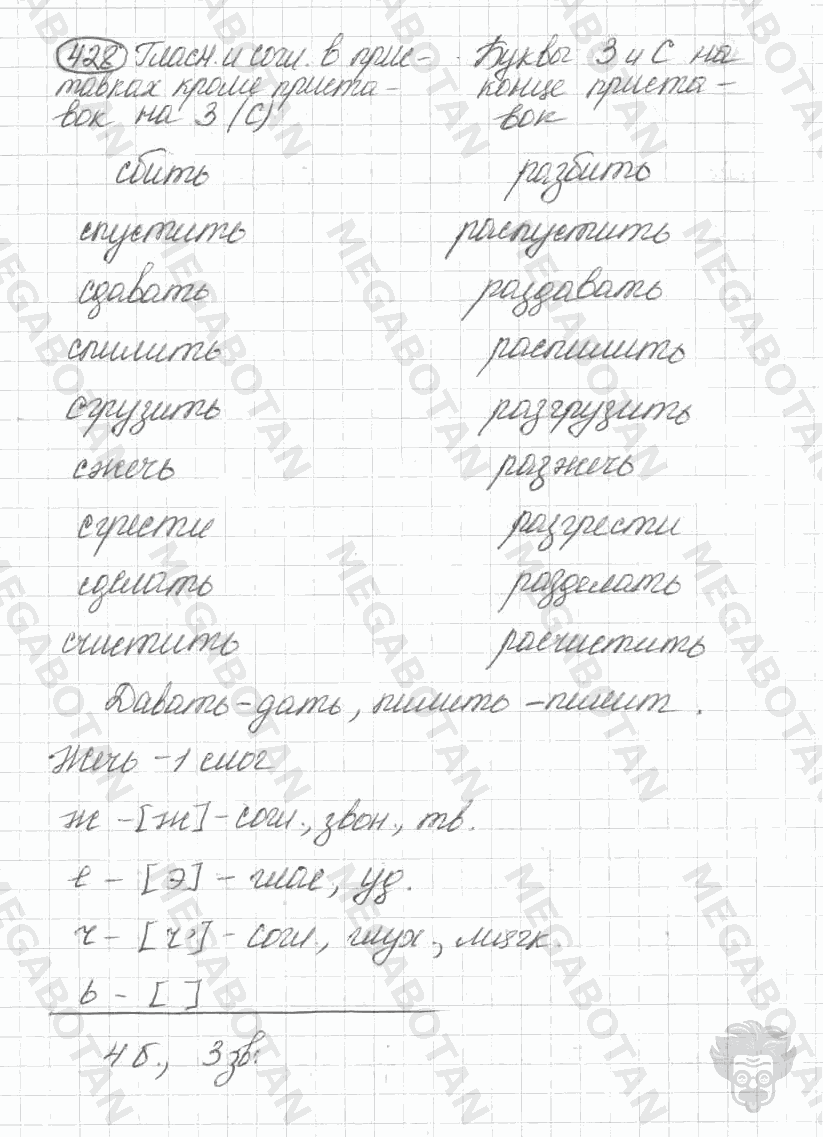 428 Гласн. и согл. в прис-
тавках кроме приста-
вок на З (С)
Буквы З и С на
конце приста-
вок
сбить разбить
спустить распустить
сдавать раздавать
спилить распилить
сгрузить разгрузить
сжечь разжечь
сгрести разгрести
сделать разделать
счистить расчистить
Давать - дать, пилить - пилит.
Жечь - 1 слог
ж - [ж] - согл., звон., тв.
е - [э] - глас, уд.
ч - [ч'] - согл., глух., мягк.
ь - [ ]
4 б., 3 зв.
MEGABOTAN